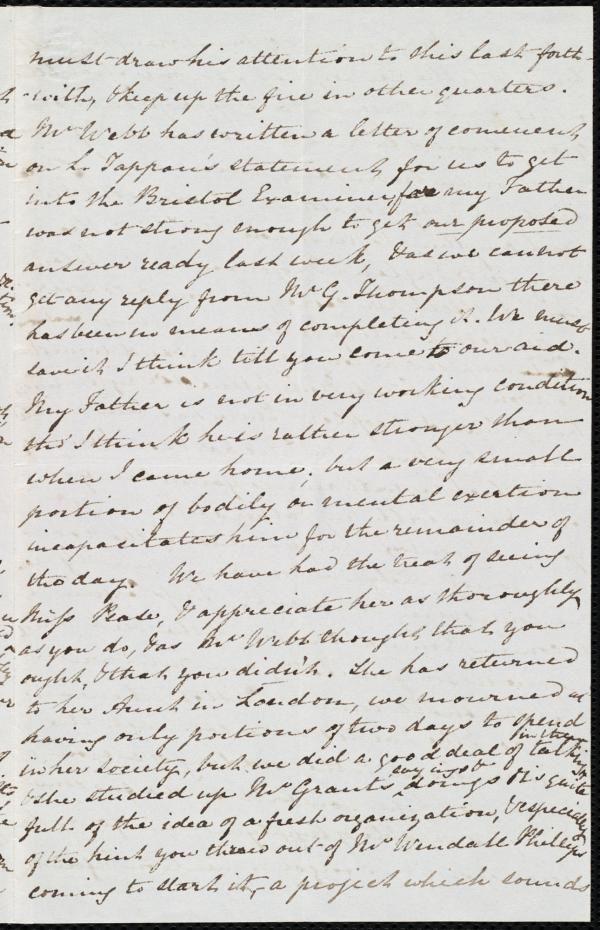 must draw his attention to this last forth-
-with, & keep up the fire in other quarters.
Mr Webb has written a letter of comment
on L. Tappan's statement for us to get
into the Bristol Examiner for my Father
was not strong enough to get our proposed
answer ready last week, & as we cannot
get any reply from Mr G. Thompson there
has been no means of completing it. We must
save it I think till you come to our aid.
My Father is not in very working condition
tho' I think he is rather stronger than
when I came home, but a very small
portion of bodily or mental exertion
incapacitates him for the remainder of
the day. We have had the treat of seeing
Miss Pease, & appreciate her as thoroughly
as you do, & as Mr Webb thought that you
ought, & that you didn't. She has returned
to her Aunt in London, we mourned at
having only portions of two days to spend
in her society, but we did a good deal of talking
in them
& she studied up Mr Grant's doings & is quite
full of the idea of a fresh organization, & especially
of the hint you threw out of Mr Wendall Phillips
coming to start it, a project which sounds